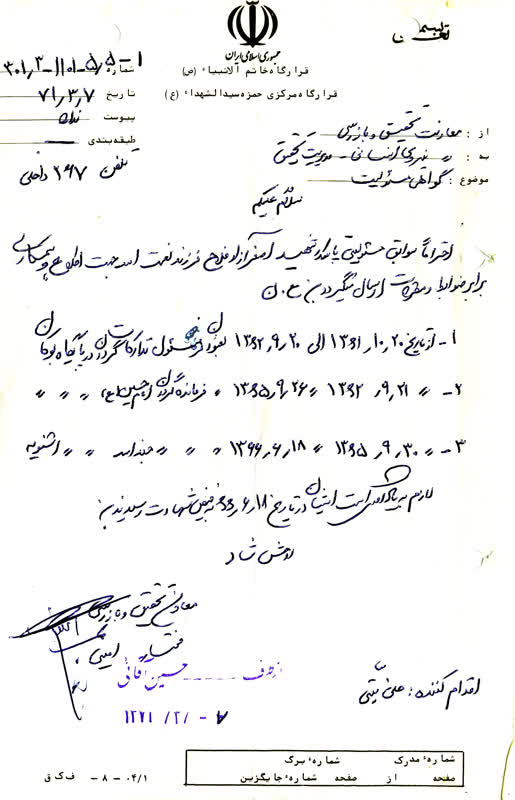 بسمه تعالی
جمهوری اسلامی ایران
قرارگاه خاتم الانبیاء (ص)
قرارگاه مرکزی حمزه سیدالشهداء (ع)
شماره ۱-۵٫۵-۱۱۰۱-۳۰۱٫۳
تاریخ ۷۱٫۳٫۷
پیوست ندارد
طبقه‌بندی
تلفن ۲۴۷ داخلی
از: معاونت تحقیق و بازرسی
به: نیروی انسانی - مدیریت تحقیق
موضوع: گواهی مسئولیت
سلام علیکم
احتراماً سوابق مسئولیتی پاسدار شهید اصغر آزاد فلاح فرزند نعمت اله جهت اطلاع و
برابر ضوابط و مقررات ارسال میگردد
۱- از تاریخ ۱۳۶۱٫۱۰٫۲۰ الی ۱۳۶۲٫۹٫۲۰ بعنوان مسئول تدارکات گردان در پادگان بوکان
۲- " ۱۳۶۲٫۹٫۲۱ " ۱۳۶۵٫۹٫۲۶ " فرمانده گردان امام حسین (ع) " " "
۳- " ۱۳۶۵٫۹٫۳۰ " ۱۳۶۶٫۶٫۱۸ " " " جنداله " " اشنویه
لازم به یادآوری است ایشان در تاریخ ۶۶٫۶٫۱۸ بفیض شهادت رسیدند
روحش شاد
معاونت تحقیق و بازرسی
امینی
از طرف حسین آقائی
۱۳۷۱/۲/-۸
اقدام کننده: علی
شماره مدرک شماره برگ
صفحه از صفحه شماره جایگزین
۰۴/۱ - ۸ - ف ک ق